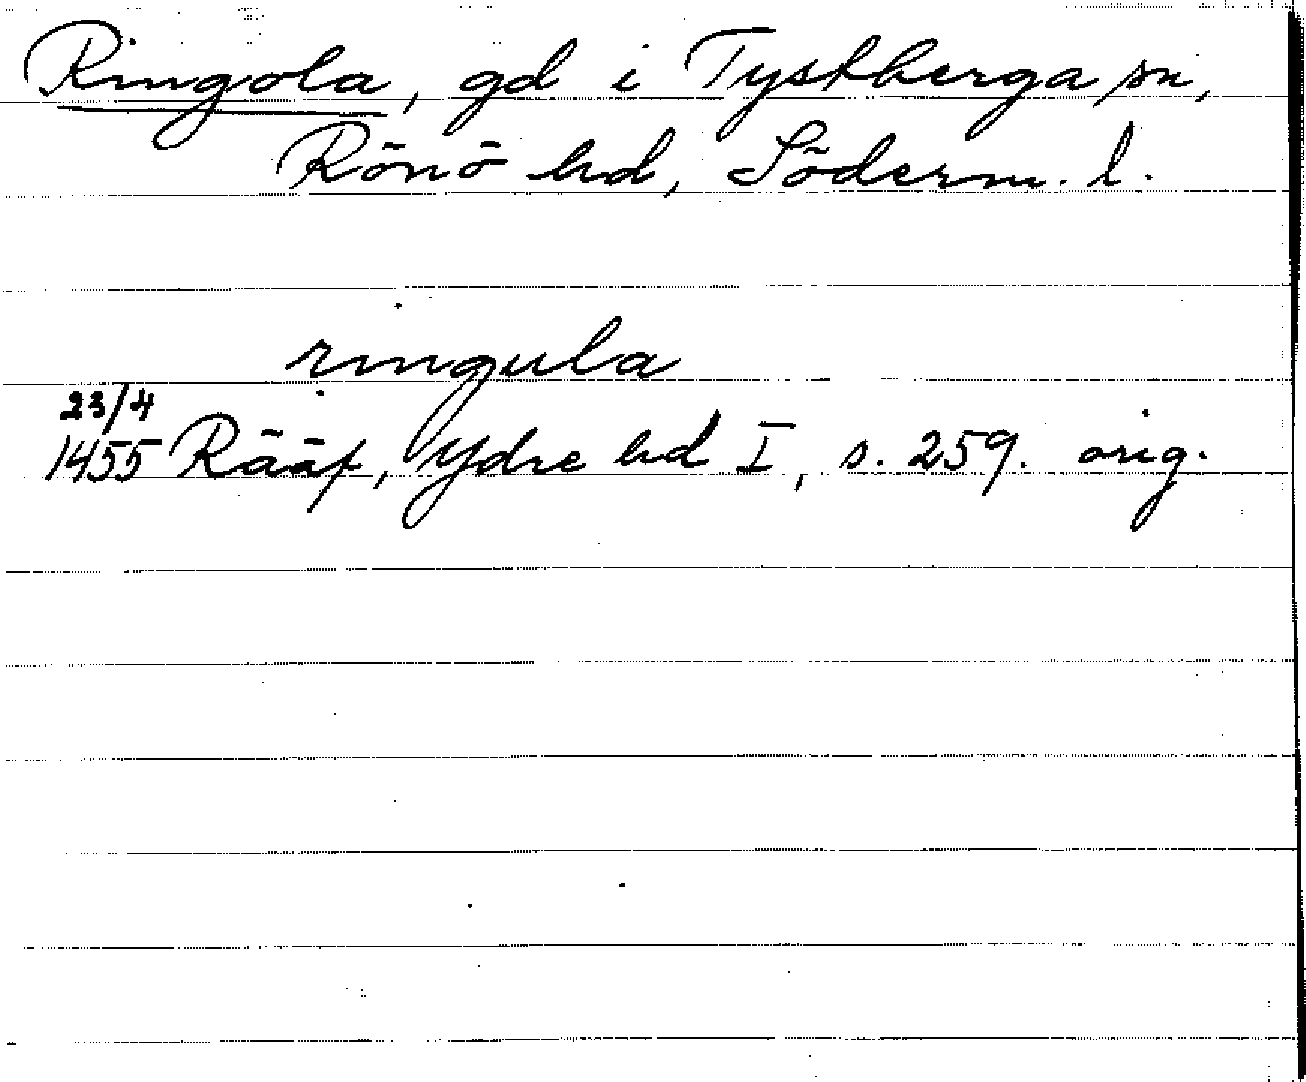 Ringola, gd i Tystberga sn,
Rönö hd, Söderm. l.
ringula
23/4
1455 Rääf, Ydre hd I, s. 259. orig.